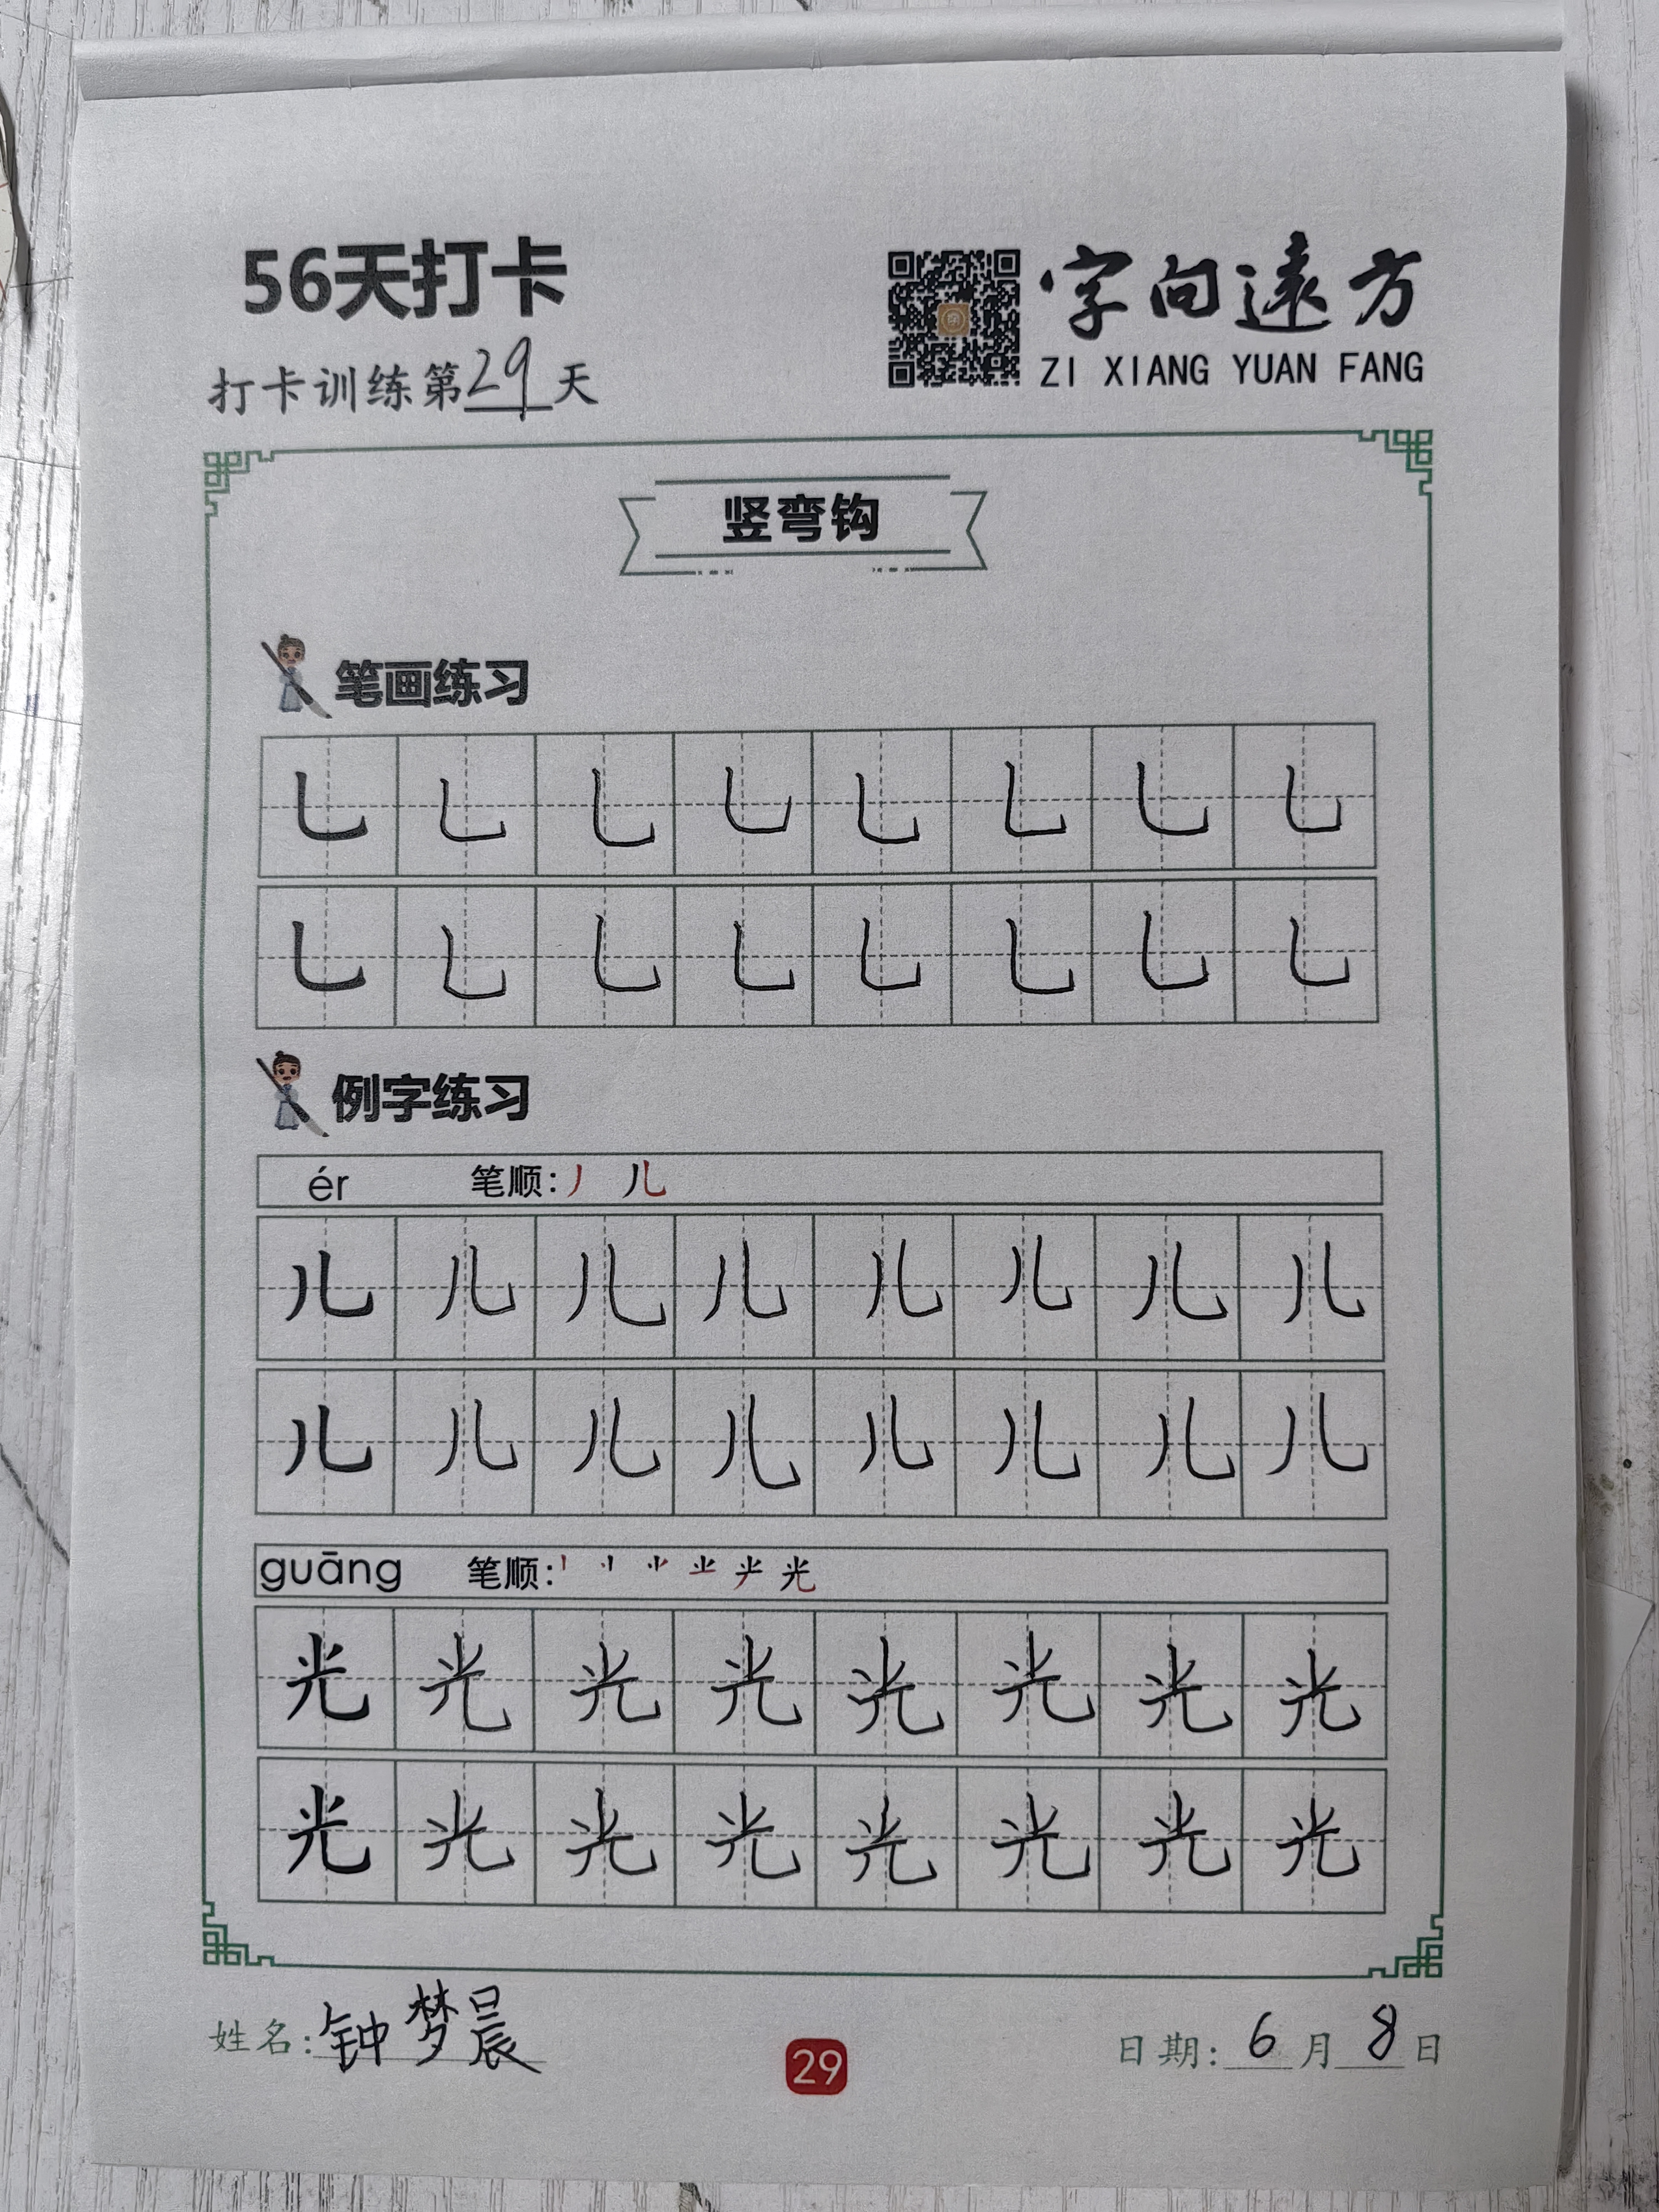 56天打卡
字向遠方
ZI XIANG YUAN FANG
打卡训练第29天
竖弯钩
笔画练习
乚 乚 乚 乚 乚 乚 乚 乚
乚 乚 乚 乚 乚 乚 乚 乚
例字练习
ér 笔顺: 丿 儿
儿 儿 儿 儿 儿 儿 儿 儿
儿 儿 儿 儿 儿 儿 儿 儿
guāng 笔顺: 光
光 光 光 光 光 光 光 光
光 光 光 光 光 光 光 光
姓名: 钟梦晨
29
日期: 6月8日